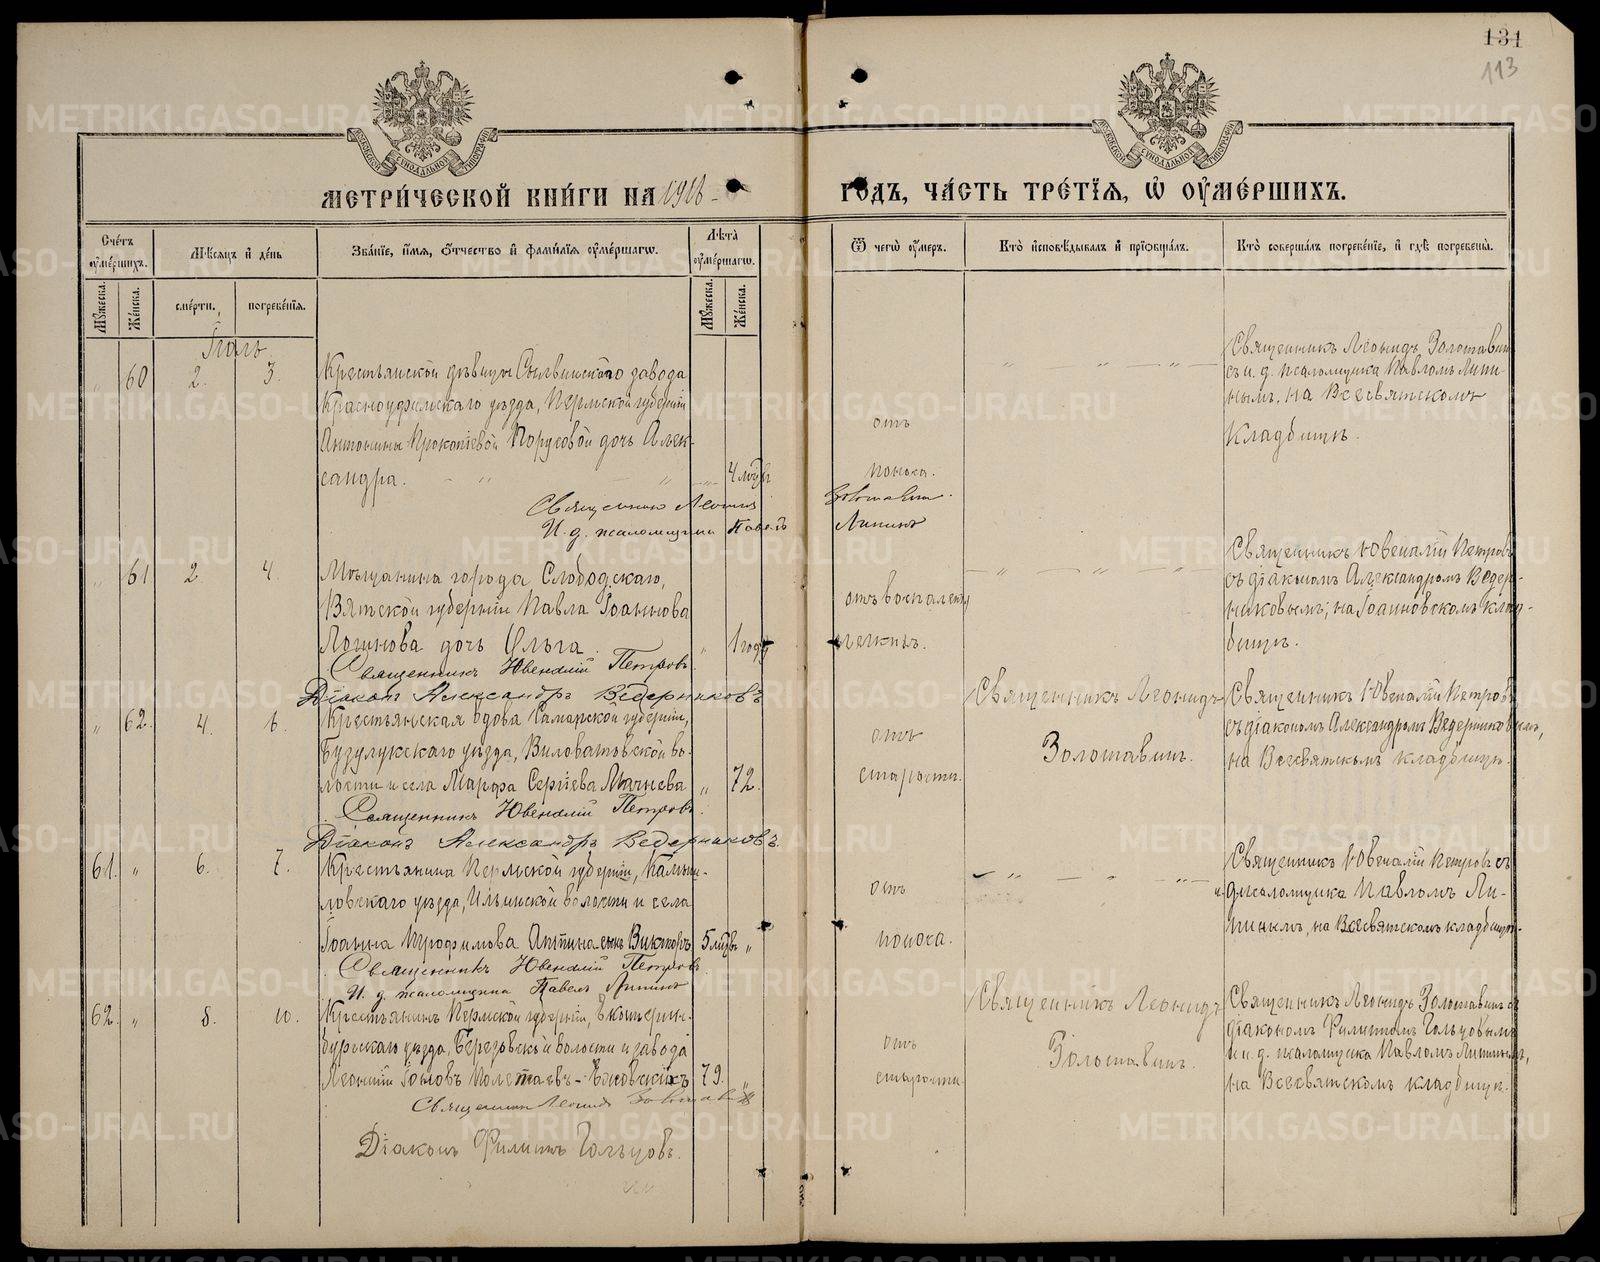 131
113
МЕТРИЧЕСКОЙ КНИГИ НА 1916
ГОДЪ, ЧАСТЬ ТРЕТІЯ, Ѡ ОУМЕРШИХЪ.
Счетъ оумершихъ.
Мѣсяцъ и день
Званіе, имя, отчество и фамилія оумершагѡ.
Лѣта оумершагѡ.
Ѿ чегѡ оумеръ.
Кто исповѣдывалъ и пріобщалъ.
Кто совершалъ погребеніе, и гдѣ погребены.
Мужеска.
Женска.
смерти.
погребенія.
Мужеска.
Женска.
Іюль
60 2. 3.
Крестьянской дѣвицы Сылвинскаго завода
Красноуфимскаго уѣзда, Пермской губерніи
Антонины Прокопіевой дочь Алек-
сандра.
4 мѣс.
отъ
поноса.
Священникъ Леонидъ Золотавинъ
съ и. д. псаломщика Павломъ Липи-
нымъ, на Всесвятскомъ
кладбищѣ.
Священникъ Леонидъ Золотавинъ.
И. д. псаломщика Павелъ Липинъ
61 2 4.
Мѣщанина города Слободскаго,
Вятской губерніи Павла Іоаннова
Логинова дочь Ольга.
1 году
отъ воспаленія
легкихъ.
Священникъ Ювеналій Петровъ
съ діакономъ Александромъ Ведер-
никовымъ, на Іоанновскомъ клад-
бищѣ.
Священникъ Ювеналій Петровъ.
Діаконъ Александръ Ведерниковъ
" 62. 4. 6.
Крестьянская вдова Самарской губерніи,
Бузулукскаго уѣзда, Виловатовской во-
лости и села Марфа Сергіева
" 72.
отъ
старости.
Священникъ Леонидъ
Золотавинъ.
Священникъ Ювеналій Петровъ
съ діакономъ Александромъ Ведерниковымъ,
на Всесвятскомъ кладбищѣ.
Священникъ Ювеналій Петровъ.
Діаконъ Александръ Ведерниковъ.
61. " 6. 7.
Крестьянина Пермской губерніи, Камыш-
ловскаго уѣзда, Ильинской волости и села
Іоанна Трофимова сынъ Викторъ
5 мѣс. "
отъ
поноса.
Священникъ Ювеналій Петровъ съ
и. д. псаломщика Павломъ Ли-
пинымъ, на Всесвятскомъ кладбищѣ.
Священникъ Ювеналій Петровъ.
И. д. псаломщика Павелъ Липинъ
62. " 8. 10.
Крестьянинъ Пермской губерніи, Екатерин-
бургскаго уѣзда, Березовской волости и завода
Леонтій Іовловъ Полетаевъ-
79. "
отъ
старости
Священникъ Леонидъ
Золотавинъ.
Священникъ Леонидъ Золотавинъ съ
діакономъ Филиппомъ Гольцовымъ
и и. д. псаломщика Павломъ Липинымъ,
на Всесвятскомъ кладбищѣ.
Священникъ Леонидъ Золотавинъ
Діаконъ Филиппъ Гольцовъ.
METRIKI.GASO-URAL.RU